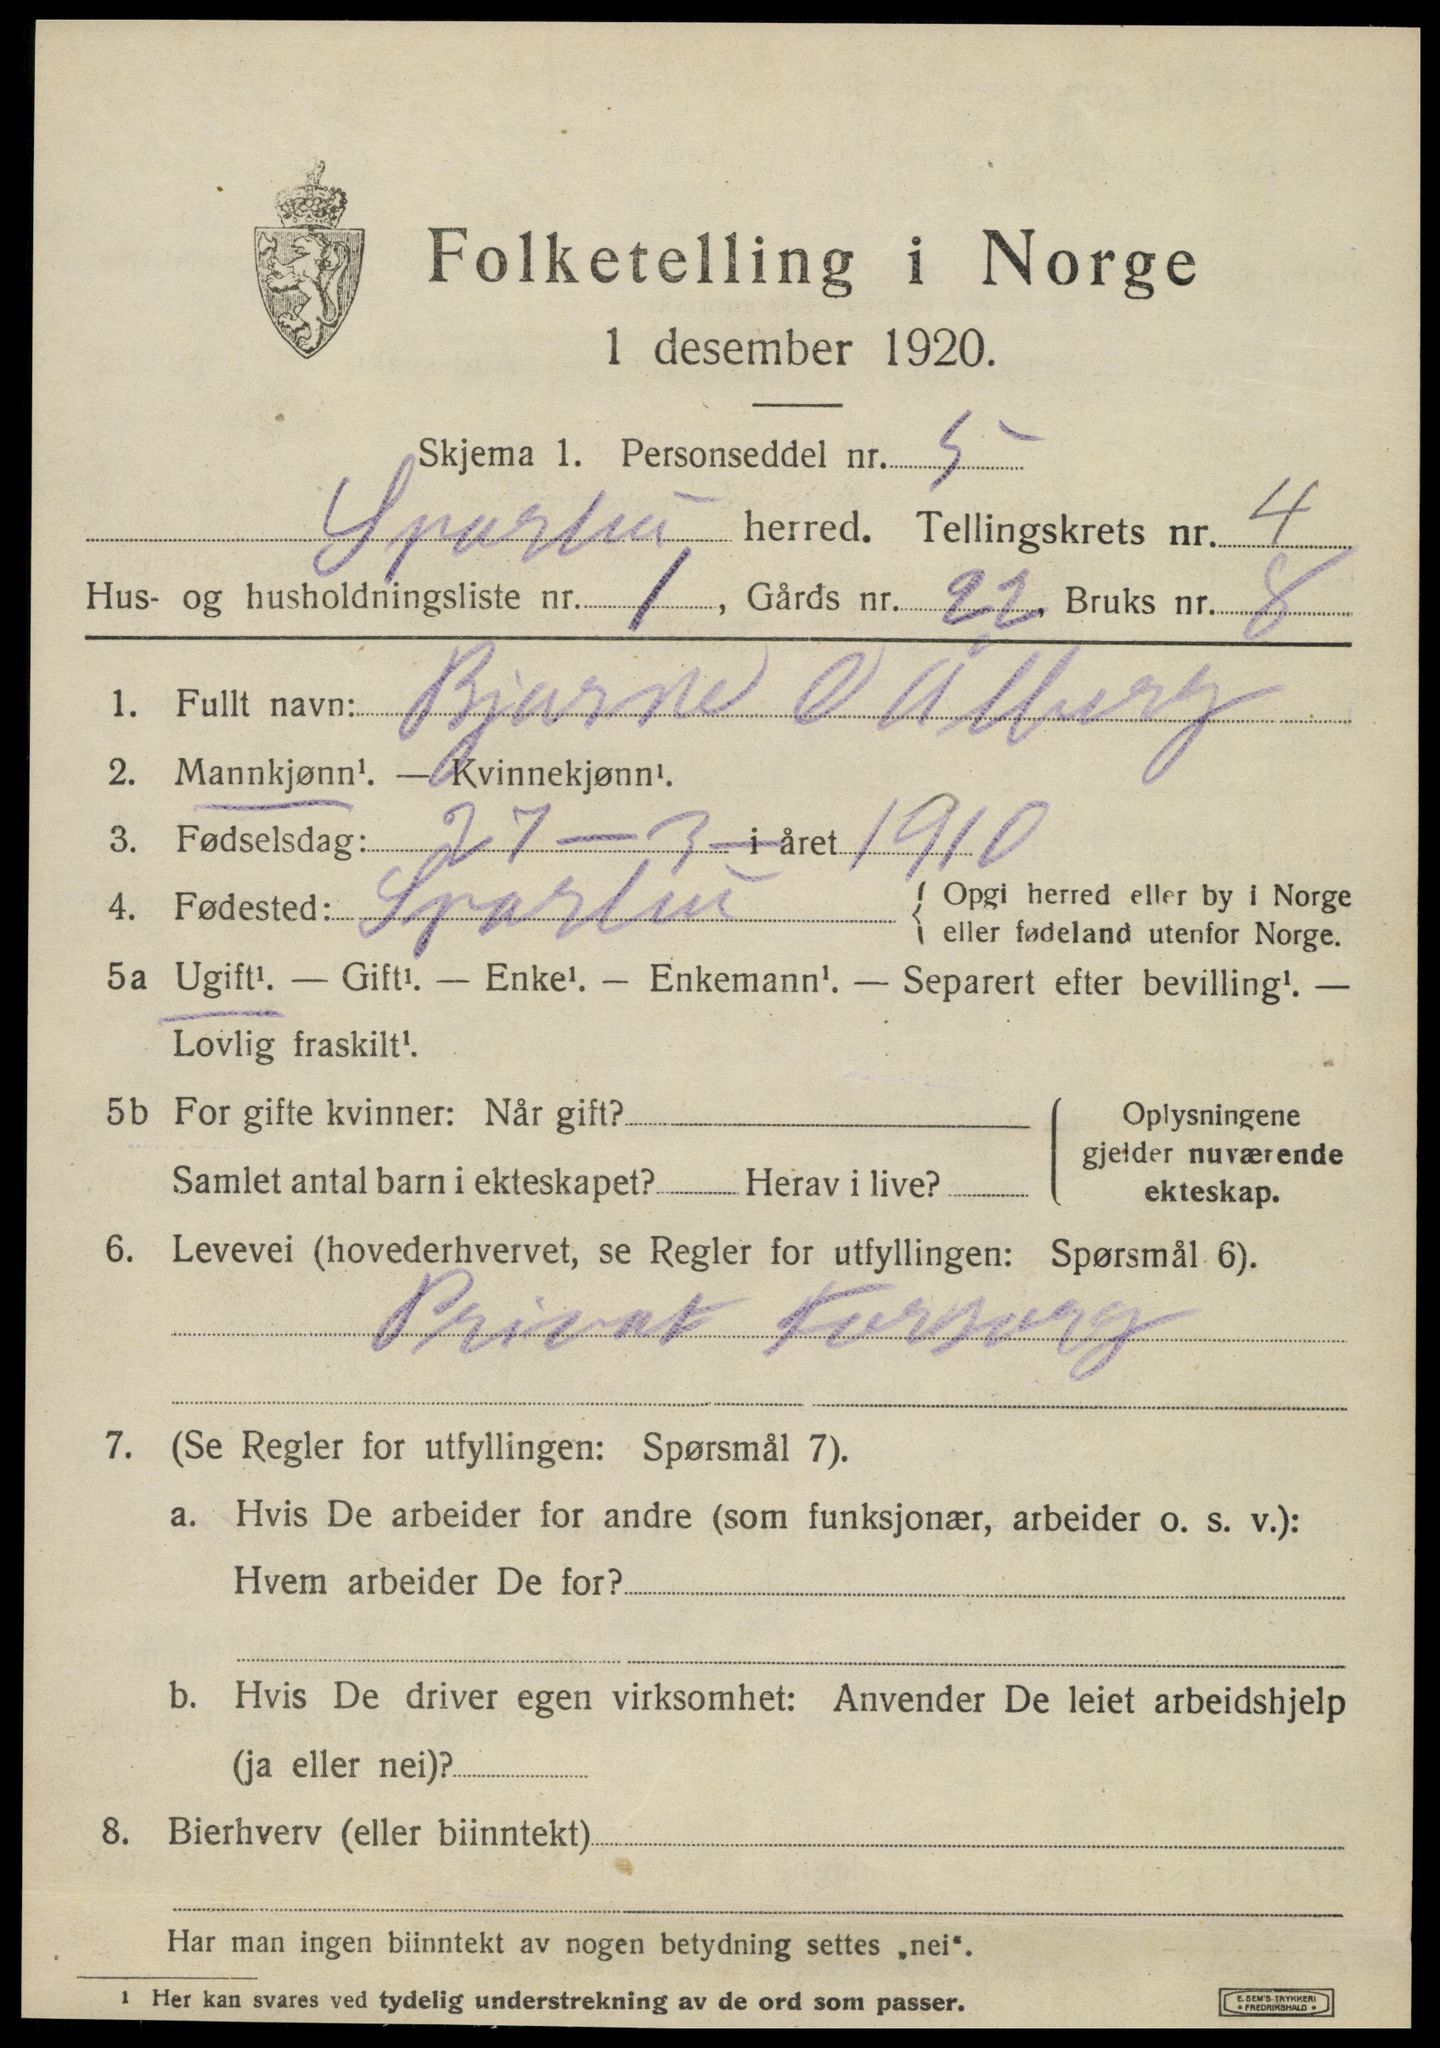 Folketelling i Norge
1 desember 1920.
Skjema 1. Personseddel nr. 5
Sparbu herred. Tellingskrets nr. 4
Hus- og husholdningsliste nr. 1, Gårds nr. 22, Bruks nr. 8
1. Fullt navn: Bjarne O Ålberg
2. Mannkjønn¹. — Kvinnekjønn¹.
3. Fødselsdag: 27 — 3 — i året 1910
4. Fødested: Sparbu { Opgi herred eller by i Norge
eller fødeland utenfor Norge.
5a Ugift¹. — Gift¹. — Enke¹. — Enkemann¹. — Separert efter bevilling¹. —
Lovlig fraskilt¹.
5b For gifte kvinner: Når gift? Oplysningene
gjelder nuværende
Samlet antal barn i ekteskapet? Herav i live? ekteskap.
6. Levevei (hovederhvervet, se Regler for utfyllingen: Spørsmål 6).
Privat Forsorg
7. (Se Regler for utfyllingen: Spørsmål 7).
a. Hvis De arbeider for andre (som funksjonær, arbeider o. s. v.):
Hvem arbeider De for?
b. Hvis De driver egen virksomhet: Anvender De leiet arbeidshjelp
(ja eller nei)?
8. Bierhverv (eller biinntekt)
Har man ingen biinntekt av nogen betydning settes „nei“.
¹ Her kan svares ved tydelig understrekning av de ord som passer.
E. SEM'S TRYKKERI
• FREDRIKSHALD •